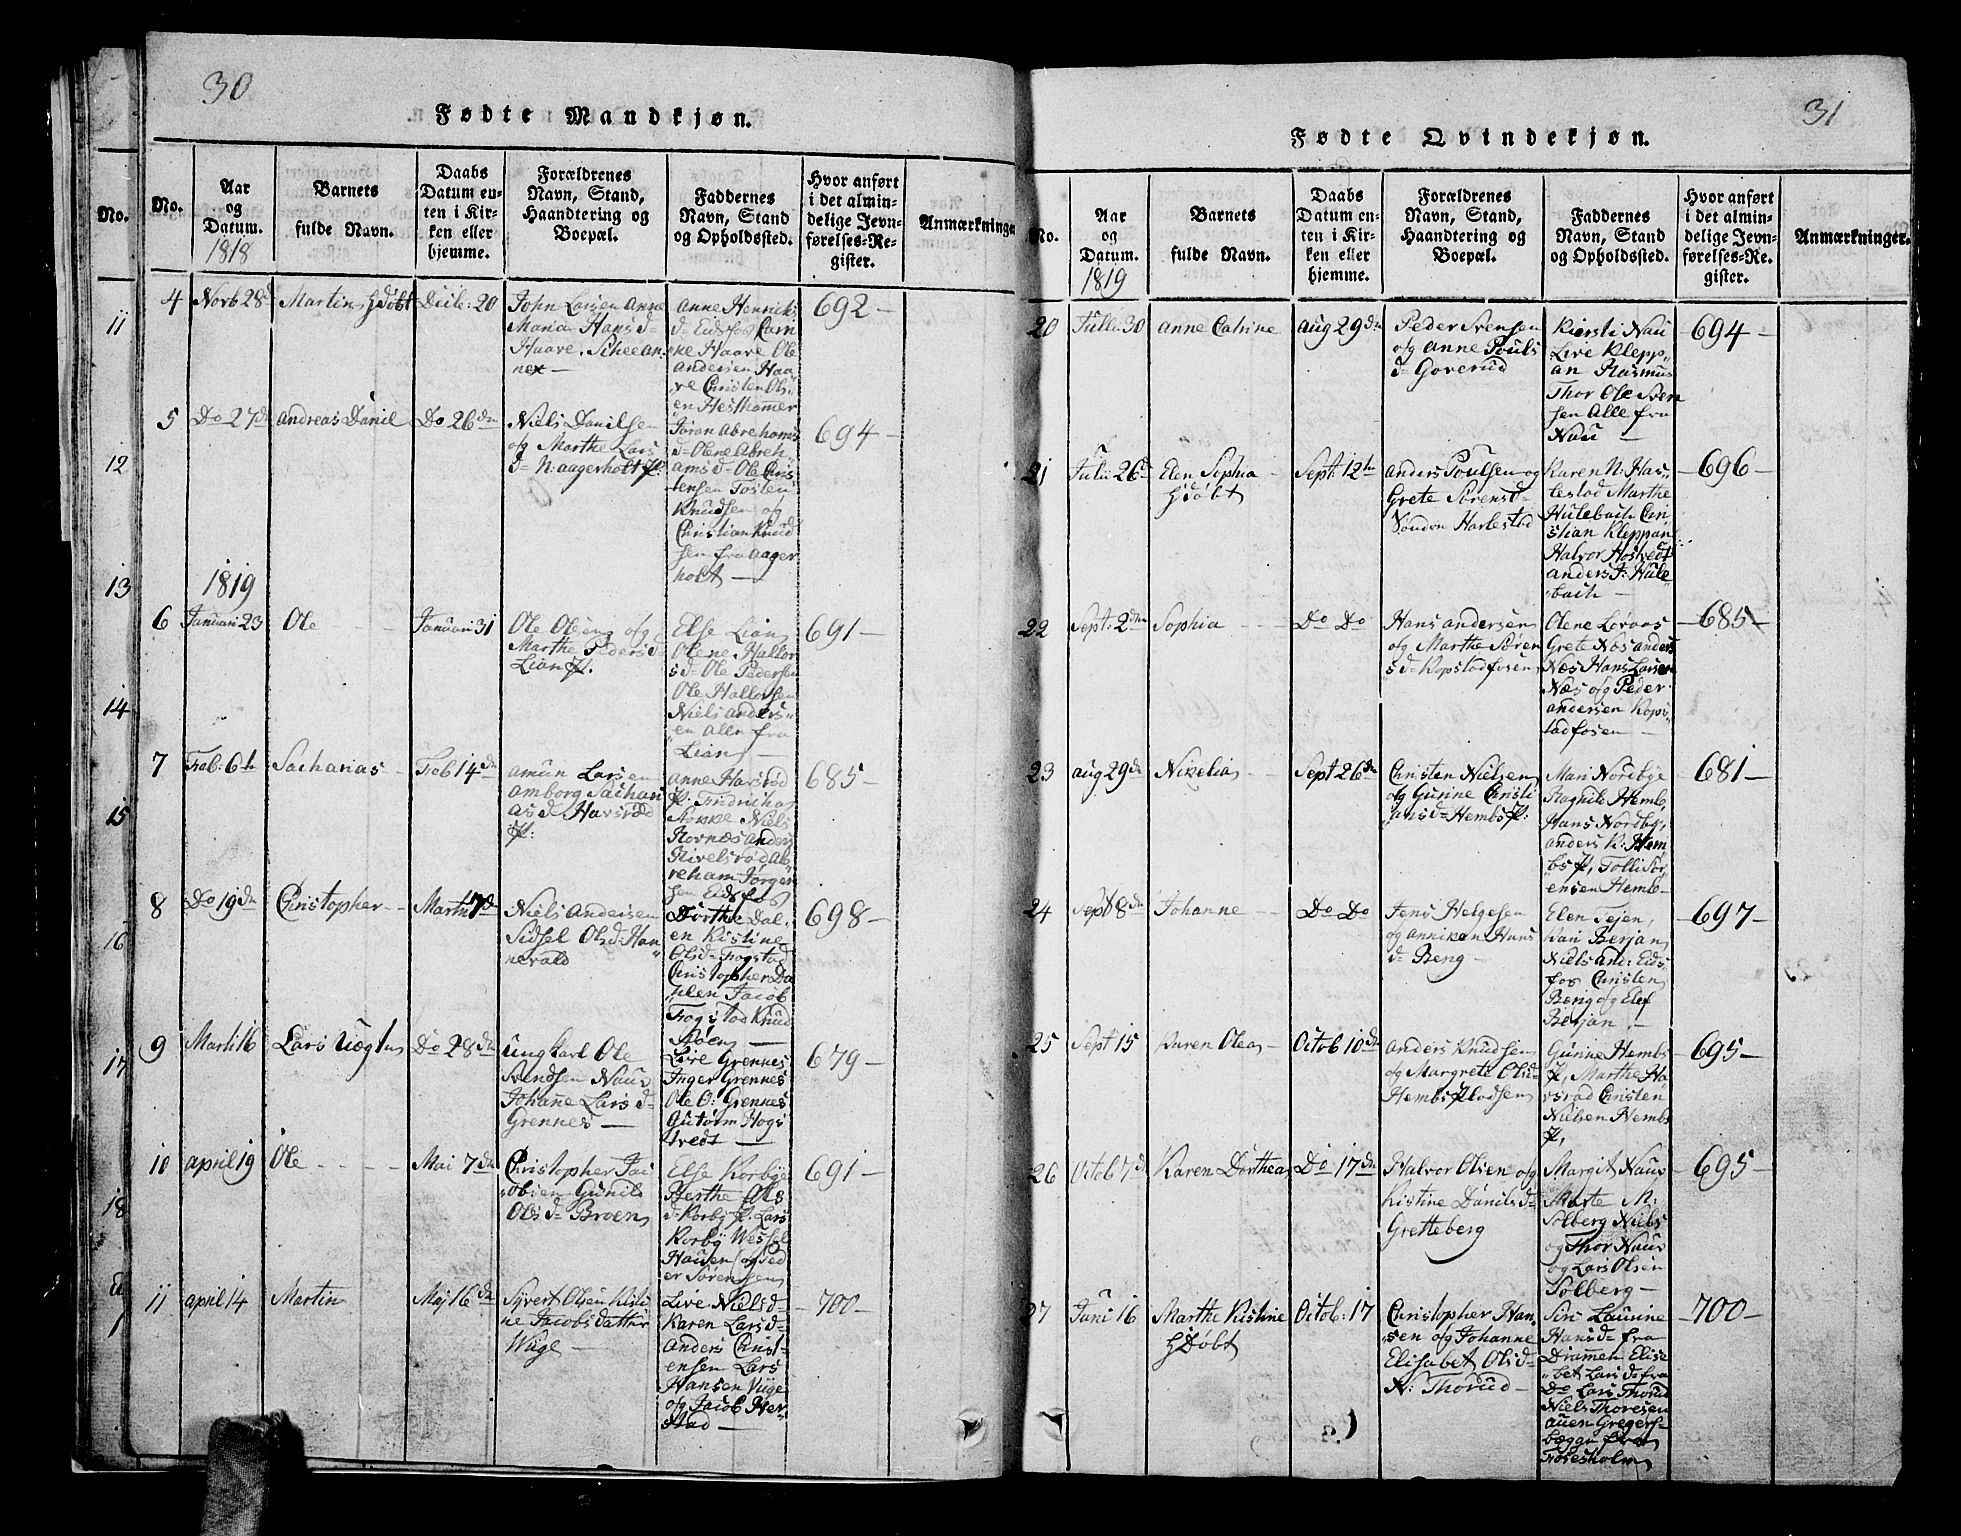 30
Fødte Mandkjøn.
No.
No.
Aar
og
Datum.
1818
Barnets
fulde Navn.
Daabs
Datum en-
ten i Kir-
ken eller
hjemme.
Forældrenes
Navn, Stand,
Haandtering og
Boepæl.
Faddernes
Navn, Stand
og Opholdssted.
Hvor anført
i det almin-
delige Jevn-
førelses-Re-
gister.
Anmærkninger
11
12
13
14
15
16
17
18
4
Novb 28d
Martin hdøbt
Decb: 20
John Larsen Anne
Maria Hans d=
Haave, Schee an
nex —
Anne Henriks
d= Eidsfos Carn
ne Haave Ole
Andersen Haa
ve Christen Ols
en Hestkamer
692 —
5
Do 27de
Andreas Danil
Do 26de
Niels Danilsen
og Marthe Lars
d= N: aagerholt
Jøran Abrehams
d= Olene Abreh
ams d= Ole Chris
tensen Tosten
Knudsen og
Christian Knud
sen fra aager
holt —
694 —
1819
6
Januari 23
Ole
Januari 31
Ole Olsen og
Marthe Peders d=
Lian
Else Lian
Olene Hallor
s d= Ole Pedersen
Ole Hallorsen
Niels anders
en alle fra
Lian —
691 —
7
Feb: 6th
Sacharias
Feb 14de
Amun Larsen
Amborg Sachari
as d= Havsrød
Anne Havsrød
Fridricha
Niels
Hornæs anders
ab
reham Jørgen
sen Eidsfos
685 —
8
Do 19de
Christopher
Marti 7d
Niels Andersen
Sidsel Olsd: Han
nevold
Dorthe Dal
en Kistine
Olsd= Fogstad
Christopher Da
hlen Jacob
Fogstad Knud
Støen
698 —
9
Marti 16
Lars Uogtus
Do 28de
Ungkarl Ole
Svendsen Nauv
Johane Lars d=
Grennes —
Live Grennes
Inger Grennes
Ole O: Grennes
Gutorm Hogs
tvedt —
679 —
10
april 19
Ole
Mai 7de
Christopher Jac
obsen Gunild
Ols d= Broen
Else Korbye
Berthe Ols
d= Korby Lars
Korby Wessel
Hansen og Ped
er Sørensen
691 —
11
april 14
Martin
Maj 16de
Syvert Olsen Kisti
ne Jacobsdatter
Wiige —
Live Niels d=
Karen Lars d=
Anders Christ
ensen Lars
Hansen Viige
og Jacob Her
stad —
700 —
31
Fødte Qvindekjøn.
No.
Aar
og
Datum.
1819
Barnets
fulde Navn.
Daabs
Datum en-
ten i Kir-
ken eller
hjemme.
Forældrenes
Navn, Stand,
Haandtering og
Boepæl.
Faddernes
Navn, Stand
og Opholdssted.
Hvor anført
i det almin-
delige Jevn-
førelses-Re-
gister.
Anmærkninger.
20
Julii 30
Anne Catrine
Aug 29de
Peder Svensen
og Anne Pouls
d= Goverud
Kiersti Nau
Live Klepp
an Rasmus
Thor Ole Sven
sen Alle fra
Nau —
694 —
21
Julii 26d
Elen Sophia
hdøbt
Sept: 12te
Anders Poulsen og
Grete Sørens d=
Søndre Harlestad
Karen N: Har
lestad Marthe
Hulebach Chri
stian Kleppan
Halvor Hostvedt
anders J: Hule
bach —
696 —
22
Sept: 2den
Sophia
Do Do
Hans Andersen
og Marthe Søren
s d= Kopstadfosen
Olene Løvaas
Grete Næs anders
Næs Hans Larsen
Næs og Peder
andersen Kops
tadfosen —
685 —
23
Aug 29de
Nizelia
Sept 26de
Christen Nielsen
og Gunine Christi
ans d= Hembs
Mari Nordbye
Ragnild Hemb
Hans Nordby,
anders K: Hem
bs Tolli Sør
ensen Hemb —
681 —
24
Sept 8de
Johanne
Do Do
Jens Helgesen
og Anniken Hans
d= Berg —
Elen Tejen,
Kari Berjan
Niels and: Eids
fos Christen
Berig og Elef
Berjan —
697 —
25
Sept 15
Karen Olea
Octob 10de
Anders Knudsen
og Margrete Ols d=
Hembs Pladsen
Gunine Hembs
Marthe Ha
vsrød Christen
Nielsen Hembs
695 —
26
Octob 7d
Karen Dorthea
Do 17de
Halvor Olsen og
Kistine Danils d=
Gretteberg
Margit Nauv
Marte M:
Solberg Niels
og Thor Nauv
og Lars Olsen
Solberg —
695 —
27
Juni 16
Marthe Kistine
hdøbt
Octob: 17
Christopher Han
sen og Johanne
Elisabet Ols d=
N: Thorud —
Siri Laurine
Hans d= fra
Dramen Elisa
bet Lars d= fra
Do Lars Thorud
Niels Thoresen
auen Gregers
begge fra
Fosesholm
700 —